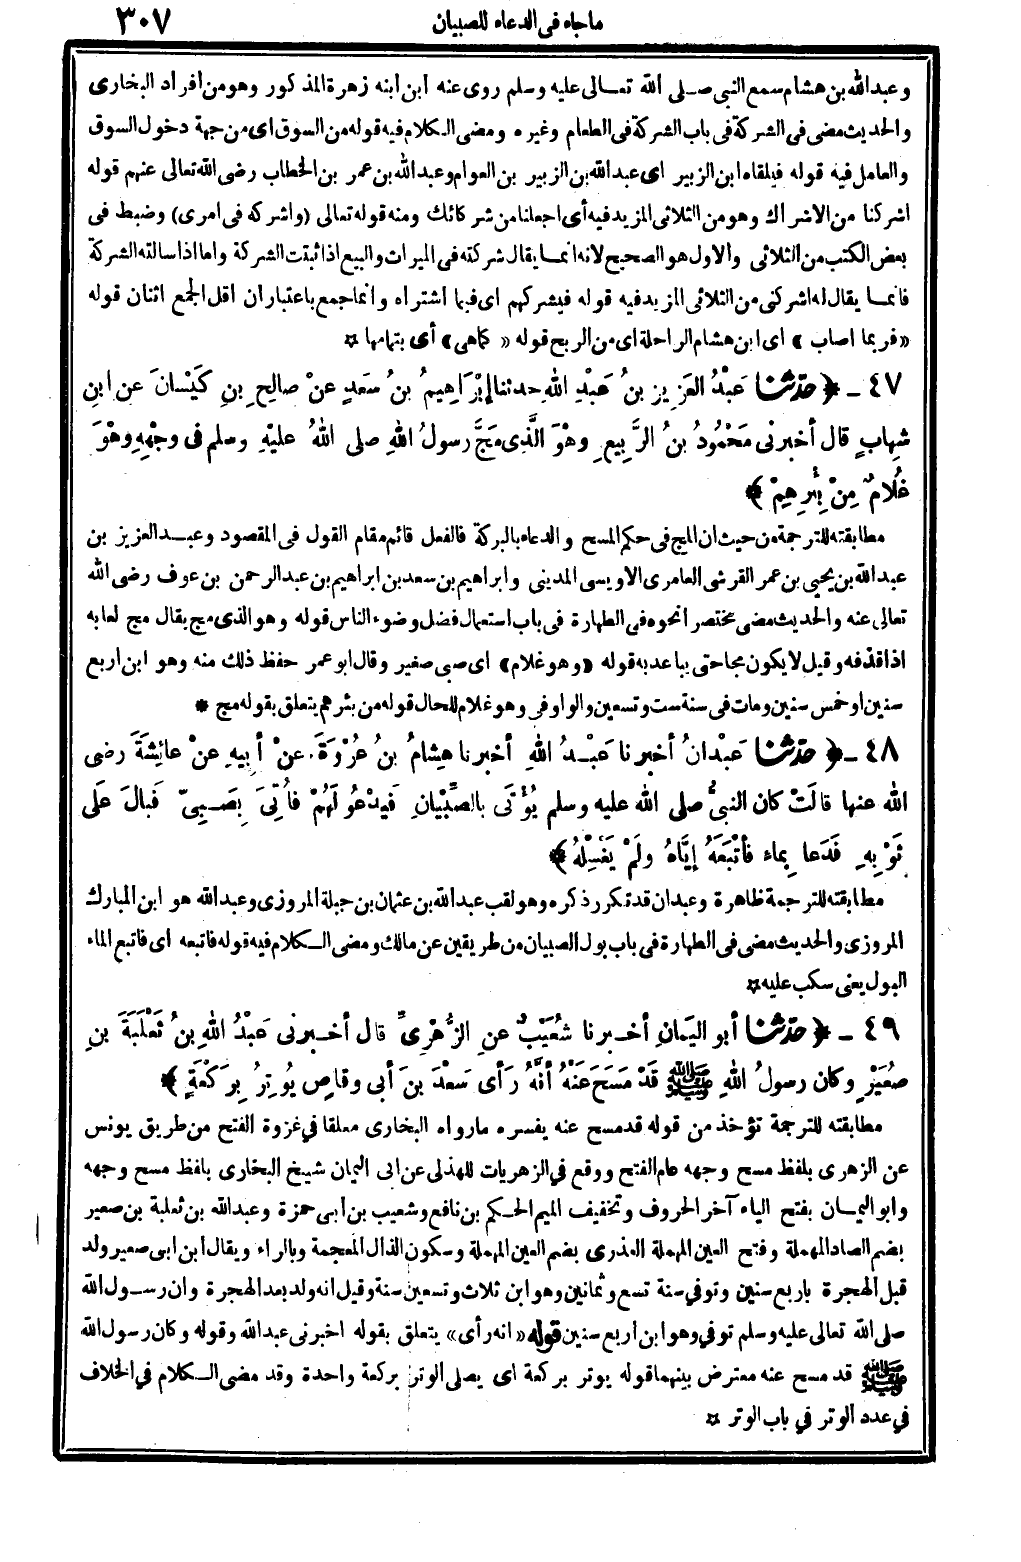 ما جاء في الدعاء للصبيان ٣٠٧
وعبدالله بن هشام سمع النبي صلى الله تعالى عليه وسلم روى عنه ابن ابنه زهرة المذكور وهو من أفراد البخارى
والحديث مضى فى الشركة فى باب الشركة فى الطعام وغيره ومضى الكلام فيه قوله من السوق اى من جهة دخول السوق
والعامل فيه قوله فيلقاه ابن الزبير اى عبدالله بن الزبير بن العوام وعبدالله بن عمر بن الخطاب رضى الله تعالى عنهم قوله
اشركنا من الاشراك وهو من الثلاثى المزيد فيه أى اجعلنا من شركائك ومنه قوله تعالى (واشركه فى امرى) وضبط فى
بعض الكتب من الثلاثى والاول هو الصحيح لانه انما يقال شركته فى الميراث والبيع اذا ثبتت الشركة واما اذا سالته الشركة
فانما يقال له اشركنى من الثلاثى المزيد فيه قوله فيشركهم اى فيما اشتراه وانما جمع باعتبار ان اقل الجمع اثنان قوله
«فربما اصاب» اى ابن هشام الراحلة اى من الربح قوله «كماهى» أى بتمامها ✡
٤٧ ـ ﴿حدثنا عَبْدُ العَزِيزِ بنُ عَبْدِ اللهِ حدثنا إبْرَاهِيمُ بنُ سَعْدٍ عنْ صالِحِ بنِ كَيْسَانَ عنِ ابنِ
شِهابٍ قال أخبرنى مَحْمُودُ بنُ الرَّبِيعِ وهْوَ الَّذِى مَجَّ رسولُ اللهِ صلى اللهُ عليْهِ وسلم فى وجْهِهِ وهْوَ
غُلامٌ مِنْ بِئْرِهِمْ﴾
مطابقته للترجمة من حيث ان المج فى حكم المسح والدعاء بالبركة فالفعل قائم مقام القول فى المقصود وعبدالعزيز بن
عبدالله بن يحيى بن عمر القرشى العامرى الاويسى المدينى وابراهيم بن سعد بن ابراهيم بن عبدالرحمن بن عوف رضى الله
تعالى عنه والحديث مضى مختصرا نحوه فى الطهارة فى باب استعمال فضل وضوء الناس قوله وهو الذى مج يقال مج لعابه
اذا قذفه وقيل لا يكون مجا حتى يباعد به قوله «وهو غلام» اى صبى صغير وقال ابو عمر حفظ ذلك منه وهو ابن اربع
سنين او خمس سنين ومات فى سنة ست وتسعين والواو فى وهو غلام للحال قوله من بئرهم يتعلق بقوله مج *
٤٨ ـ ﴿حدثنا عَبْدانُ أخبرنا عَبْدُ اللهِ أخبرنا هِشامُ بنُ عُرْوَةَ عنْ أبِيهِ عنْ عائِشَةَ رضى
الله عنها قالَتْ كان النبىُّ صلى الله عليه وسلم يُؤْتَى بالصِّبْيانِ فَيَدْعُو لَهُمْ فأُتِىَ بِصَبِىٍّ فَبالَ عَلَى
ثَوْبِهِ فَدَعا بِماءٍ فأتْبَعَهُ إيَّاهُ ولَمْ يَغْسِلْهُ﴾
مطابقته للترجمة ظاهرة وعبدان قد تكرر ذكره وهو لقب عبدالله بن عثمان بن جبلة المروزى وعبدالله هو ابن المبارك
المروزى والحديث مضى فى الطهارة فى باب بول الصبيان من طريقين عن مالك ومضى الكلام فيه قوله فاتبعه اى فاتبع الماء
البول يعنى سكب عليه ✡
٤٩ ـ ﴿حدثنا أبو اليَمانِ أخبرنا شُعَيْبٌ عنِ الزُّهْرِىِّ قال أخبرنى عَبْدُ اللهِ بنُ ثَعْلَبَةَ بنِ
صُعَيْرٍ وكان رسولُ اللهِ ﷺ قَدْ مَسَحَ عَنْهُ أنَّهُ رَأى سَعْدَ بنَ أبى وقاصٍ يُوتِرُ بِرَكْعَةٍ﴾
مطابقته للترجمة تؤخذ من قوله قد مسح عنه يفسره ما رواه البخارى معلقا في غزوة الفتح من طريق يونس
عن الزهرى بلفظ مسح وجهه عام الفتح ووقع في الزهريات للهذلى عن ابى اليمان شيخ البخارى بلفظ مسح وجهه
وابو اليمان بفتح الياء آخر الحروف وتخفيف الميم الحكم بن نافع وشعيب بن أبى حمزة وعبدالله بن ثعلبة بن صعير
بضم الصاد المهملة وفتح العين المهملة العذرى بضم العين المهملة وسكون الذال المعجمة وبالراء ويقال ابن ابى صعير ولد
قبل الهجرة باربع سنين وتوفي سنة تسع وثمانين وهو ابن ثلاث وتسعين سنة وقيل انه ولد بعد الهجرة وان رسول الله
صلى الله تعالى عليه وسلم توفي وهو ابن اربع سنين قوله «انه رأى» يتعلق بقوله اخبرنى عبدالله وقوله وكان رسول الله
ﷺ قد مسح عنه معترض بينهما قوله يوتر بركعة اى يصلى الوتر بركعة واحدة وقد مضى الكلام في الخلاف
في عدد الوتر في باب الوتر ✡